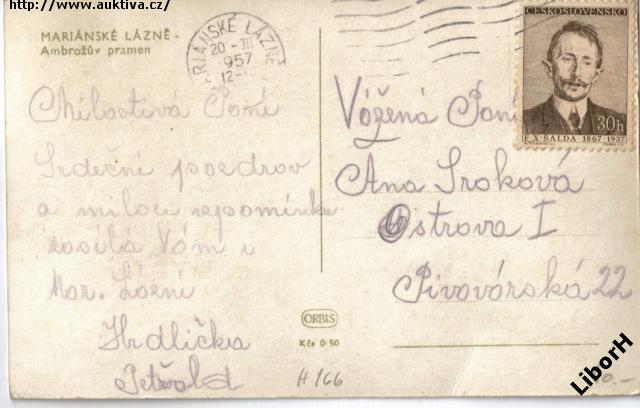 http://www.auktiva.cz/
MARIÁNSKÉ LÁZNĚ -
Ambrožův pramen
MARIÁNSKÉ LÁZNĚ
20 -III
957
12-
ČESKOSLOVENSKO
30h
F.X.ŠALDA 1867-1937
Milostivá Paní
Srdečni pozdrov
a milou vzpomínku
zosílá Vám z
Mar. Lázní
Hrdlička
Petřvald
Vóžená Pani
Ana Sroková
Ostrova I
Pivovárská 22
ORBIS
Kčs 0·50
H 166
LiborH